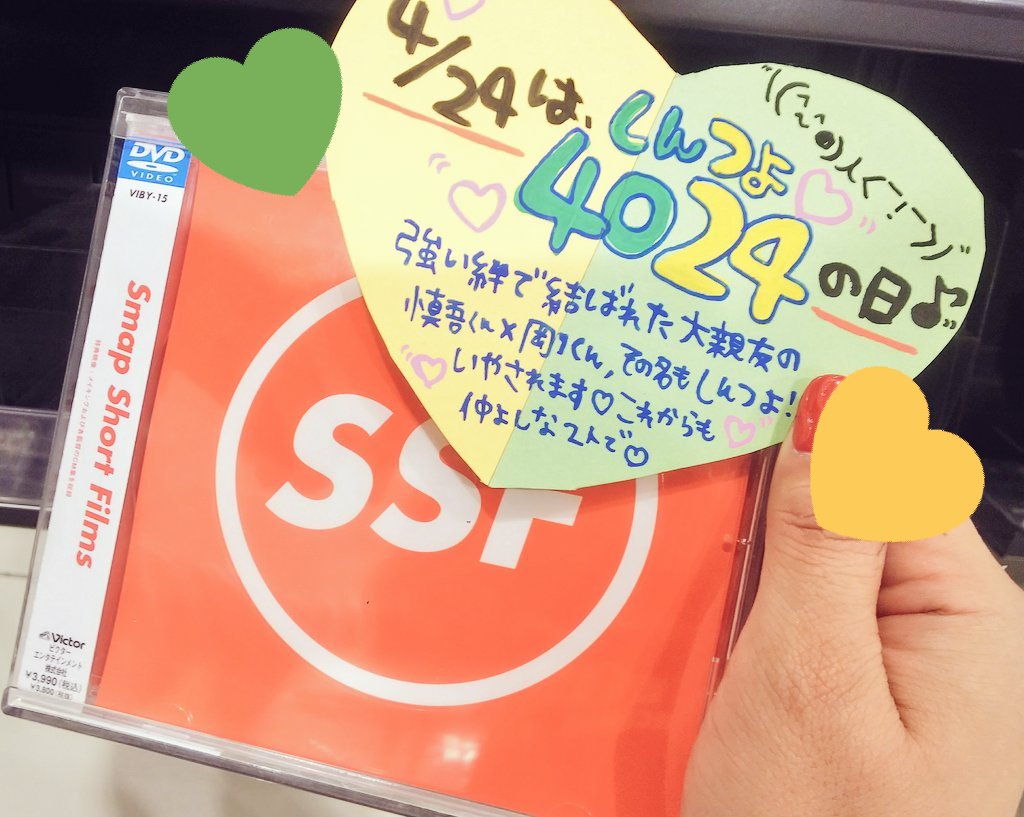 4/24は、
しんつよ
4024
の日♪
強い絆で結ばれた大親友の
慎吾くん×剛くん, その名もしんつよ!
いやされます♡これからも
仲よしな2人で♡
DVD
VIDEO
VIBY-15
Smap Short Films
Victor
ビクター
エンタテインメント
株式会社
¥3,990(税込)
¥3,800(税抜)
SSF